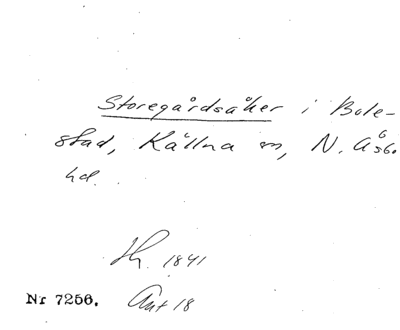 Storegårdsåker i Bole-
stad, Källna sn, N. Åsbo
hd.
Hr. 1841
Nr 7256. Ant 18